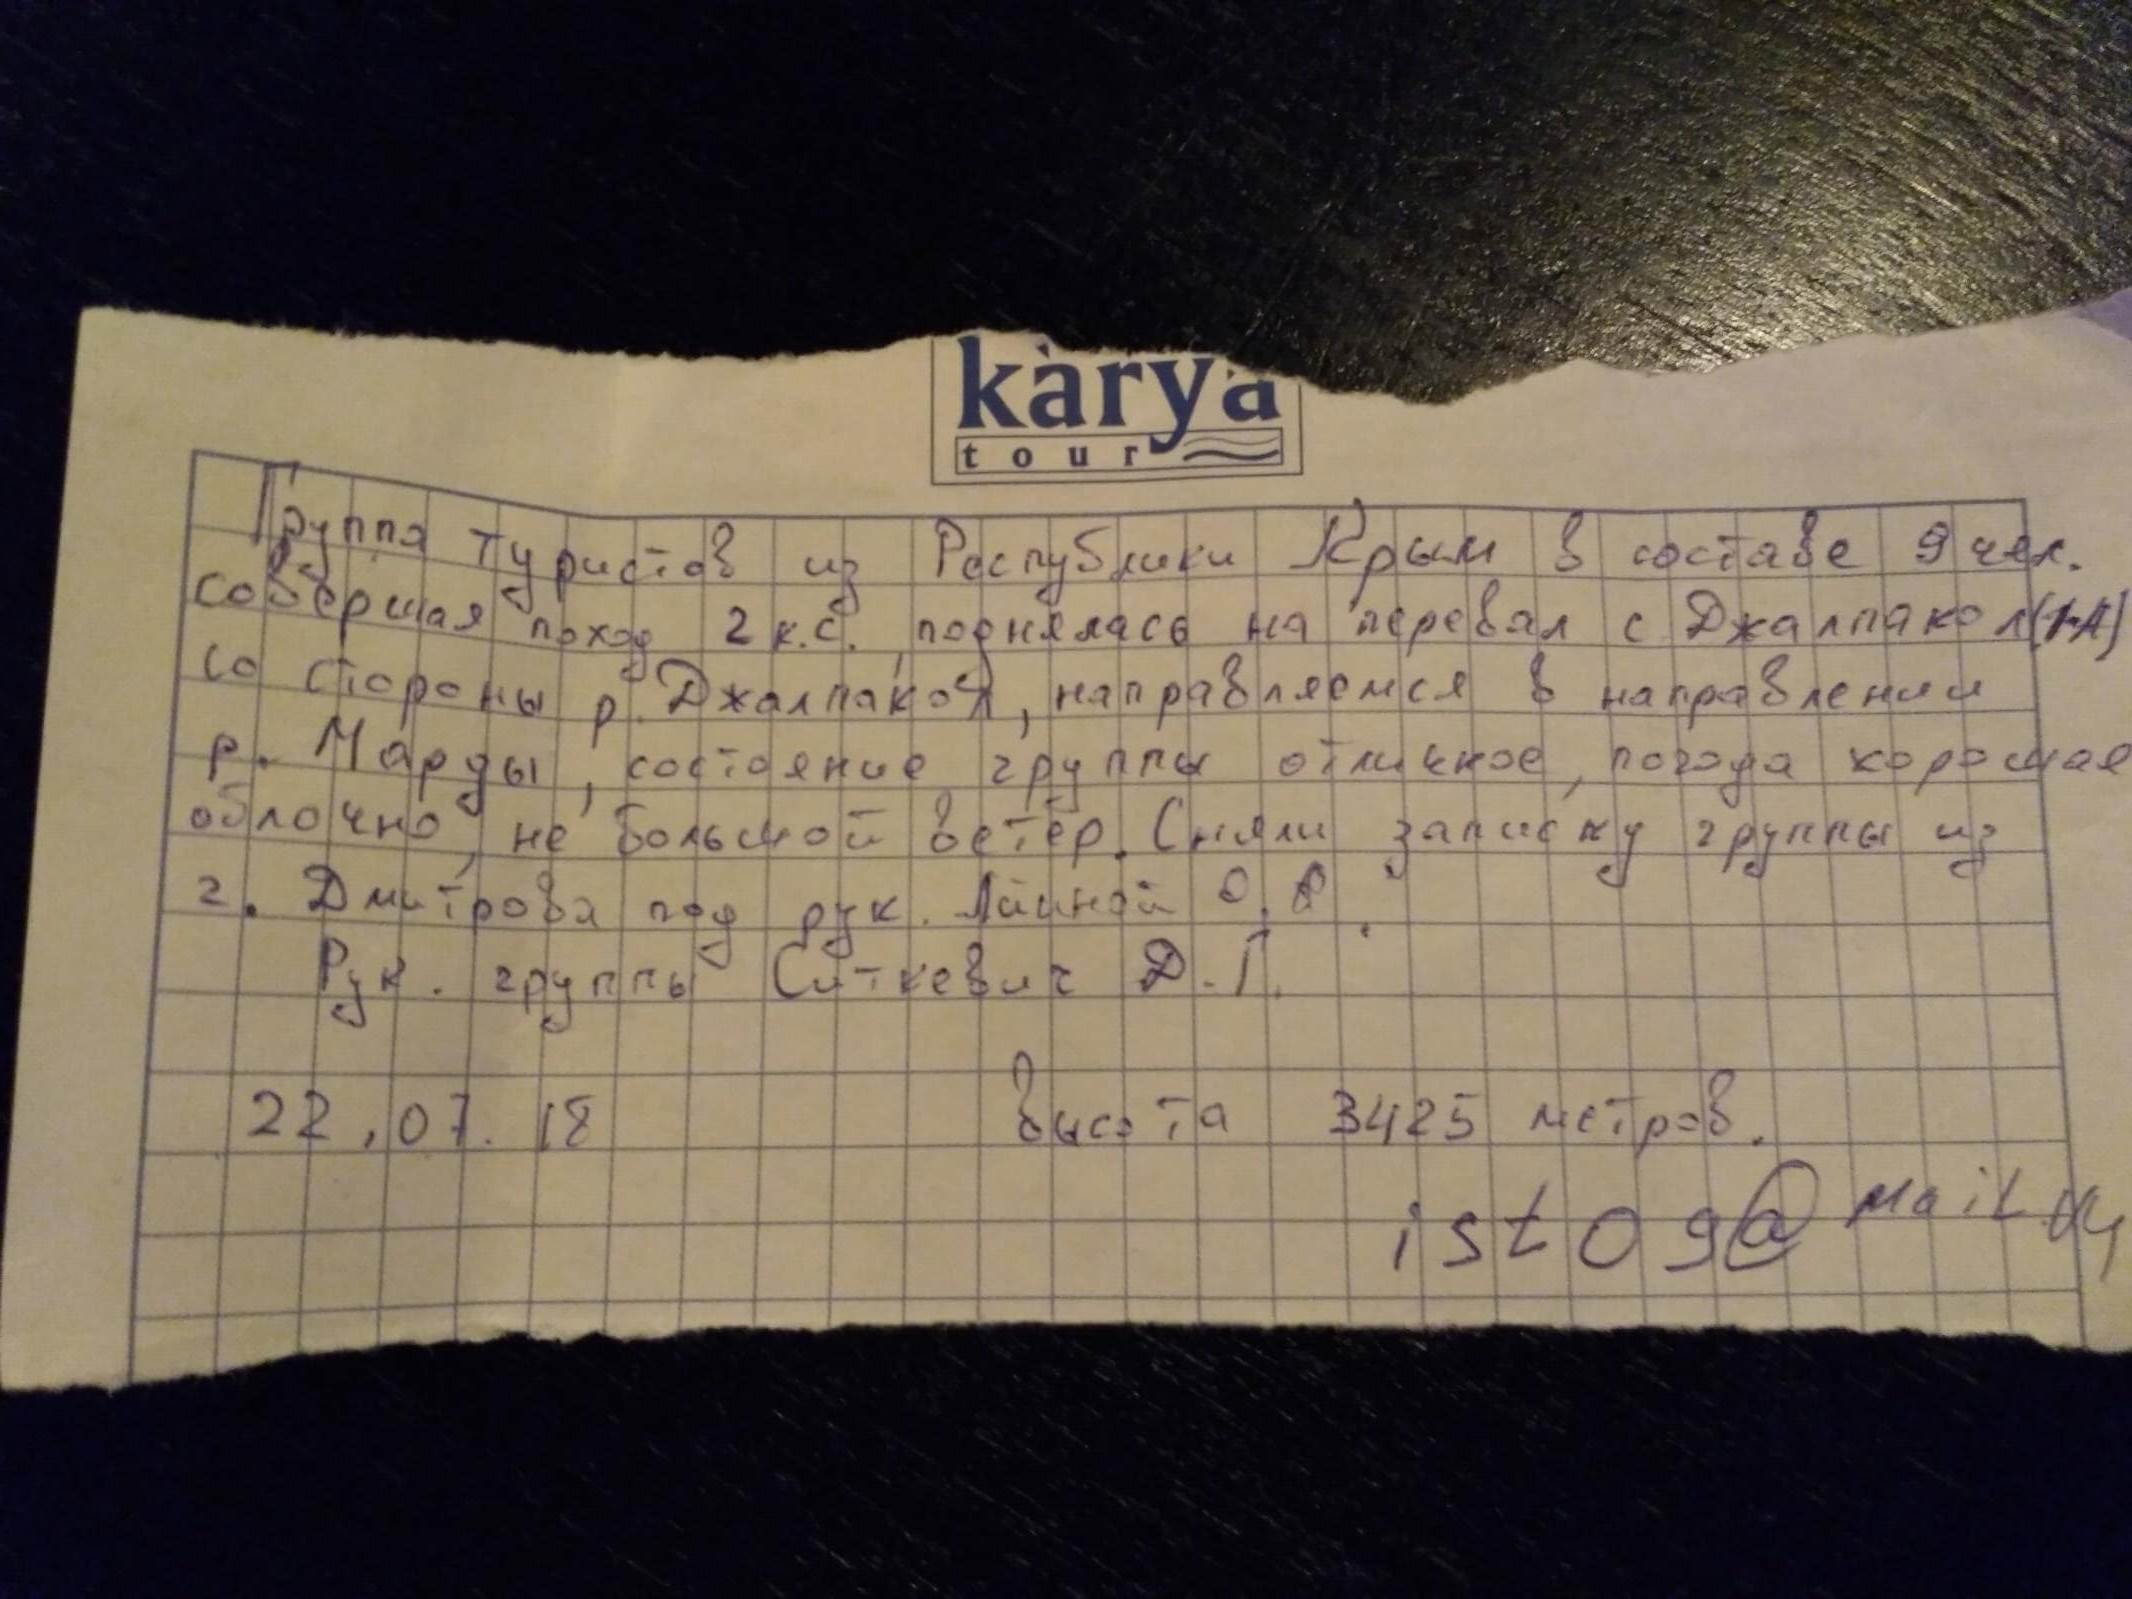 karya
tour
Группа туристов из Республики Крым в составе 9 чел.
совершая поход 2 к.с. поднялась на перевал с. Джалпакол (1-А)
со стороны р. Джалпакол, направляемся в направлении
р. Марды, состояние группы отличное, погода хорошая
облочно, не большой ветер. Сняли записку группы из
г. Дмитрова под рук.
Рук. группы Ситкевич Д.Г.
22.07.18 Высота 3425 метров.
istog@mail.ru